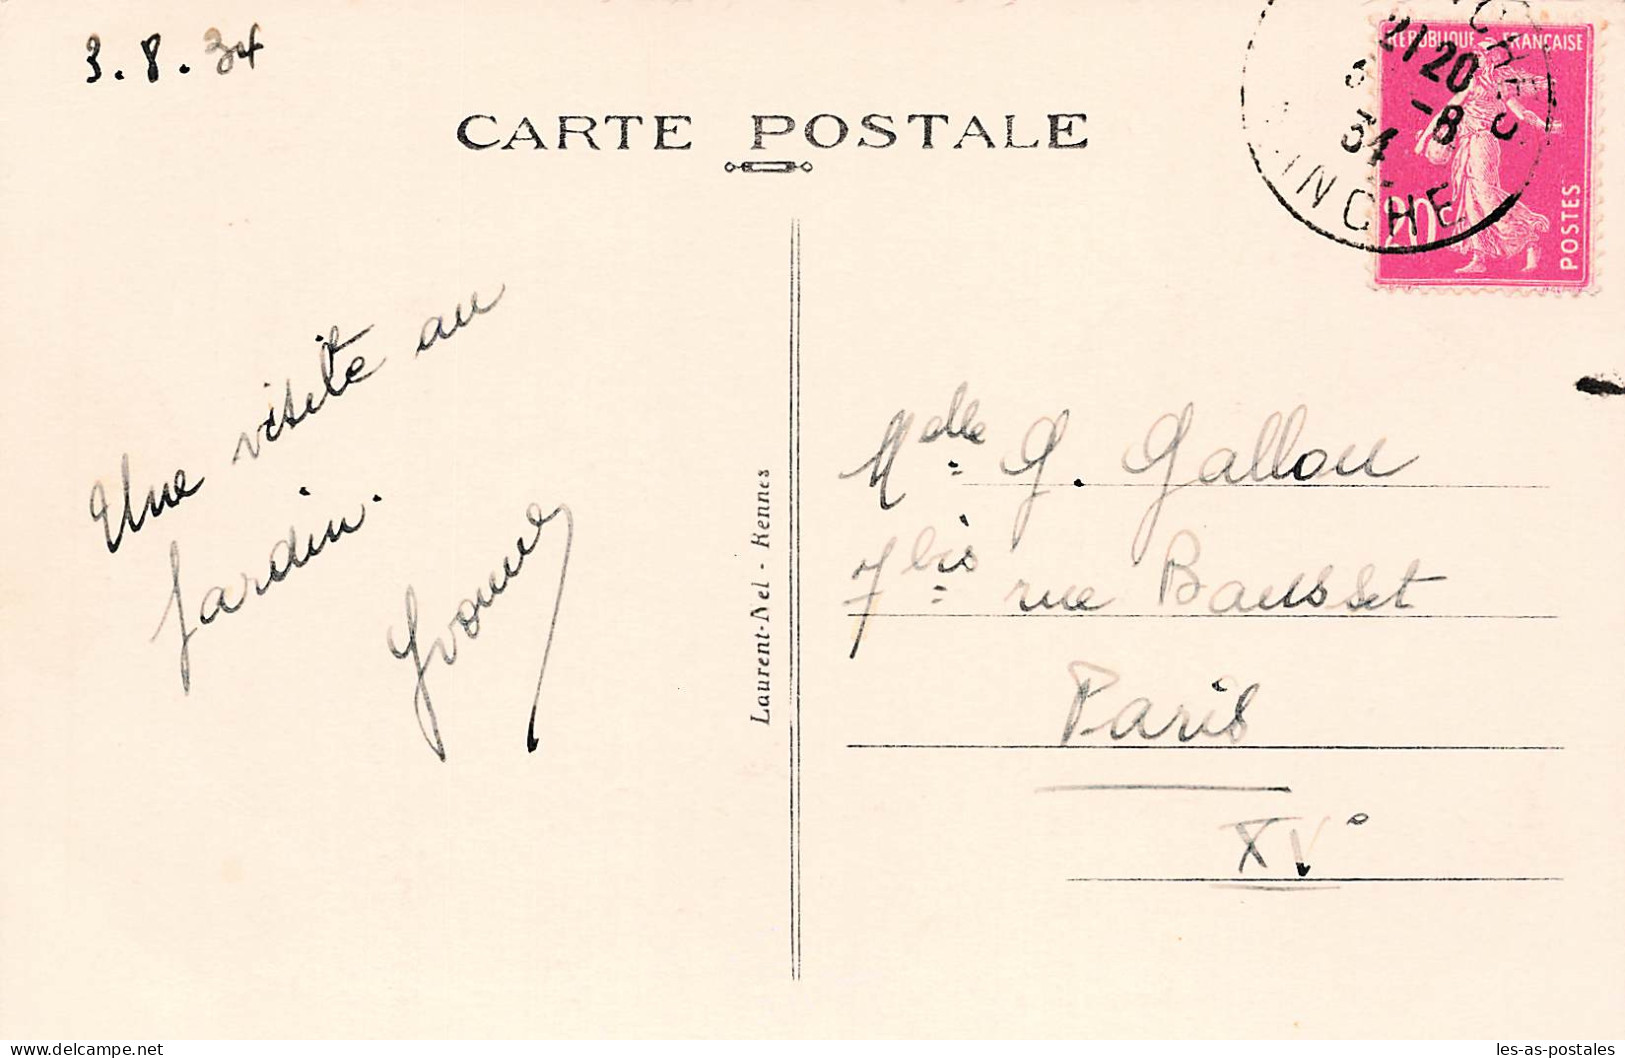 3.8.34
CARTE POSTALE
RÉPUBLIQUE FRANÇAISE
20c
POSTES
21 20
-8
34
Une visite au
jardin.
Yvonne
Laurent-Nel - Rennes
Mdlle G. Gallou
7 bis rue Bausset
Paris
XVe
delcampe.net
les-as-postales